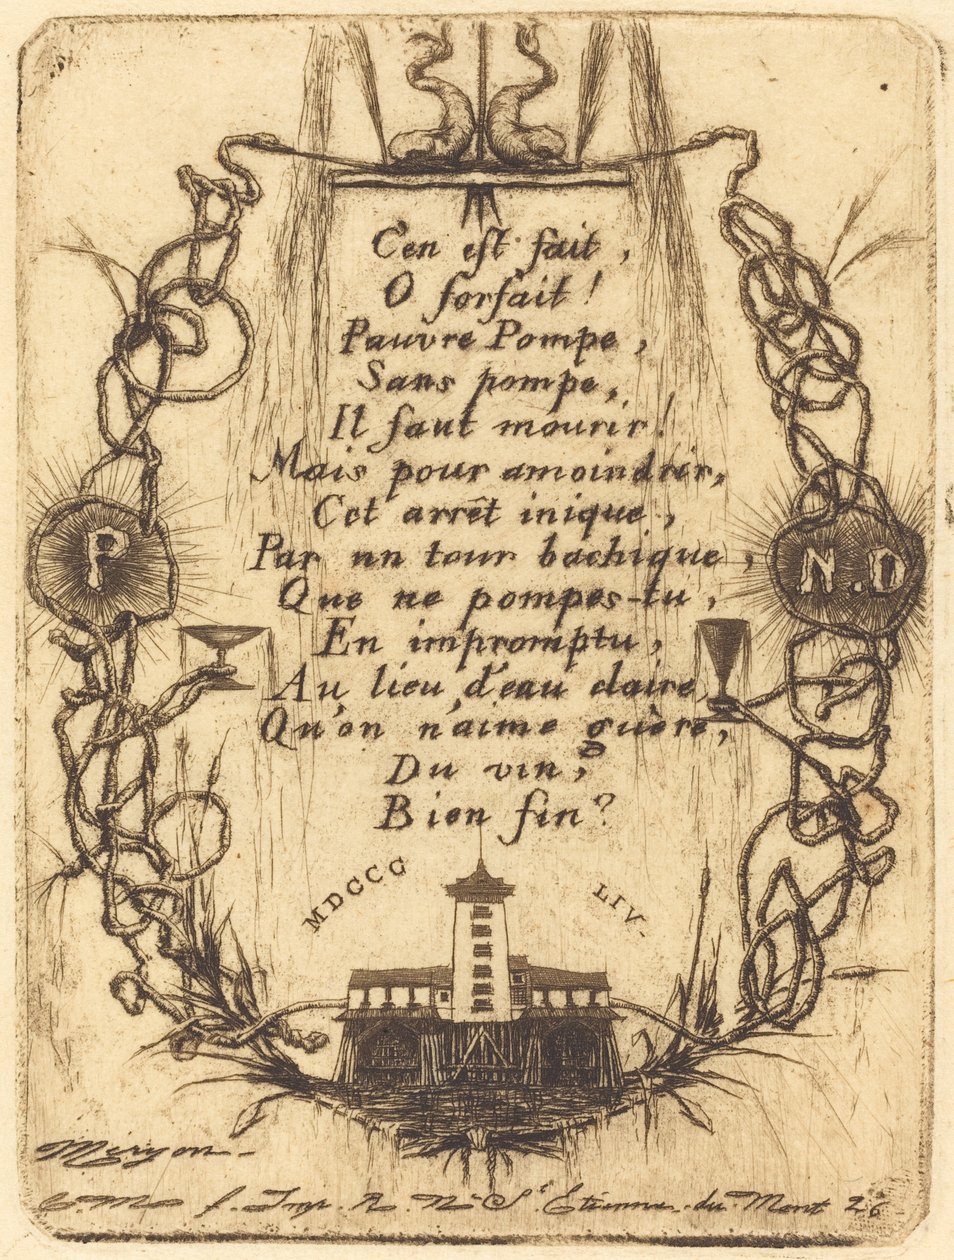 C'en est fait,
O forfait!
Pauvre Pompe,
Sans pompe,
Il faut mourir!
Mais pour amoindrir,
Cet arrêt inique,
Par un tour bachique,
Que ne pompes-tu,
En impromptu,
Au lieu d'eau claire
Qu'on n'aime guère,
Du vin,
Bien fin?
P
N.D
MDCCC LIV.
Meryon
C. M f. Imp. R. N. St Etienne du Mont 26